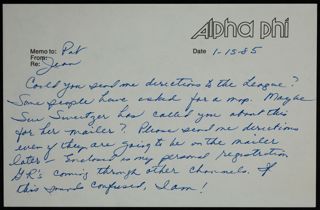 Alpha Phi
Memo to: Pat
Date 1-15-85
From:
Re: Jean
Could you send me directions to the League?
Some people have asked for a map. Maybe
Sue Sweitzer has called you about this
for her mailer? Please send me directions
even if they are going to be on the mailer
later - Enclosed is my personal registration
GR's coming through other channels. If
this sounds confused, I am!